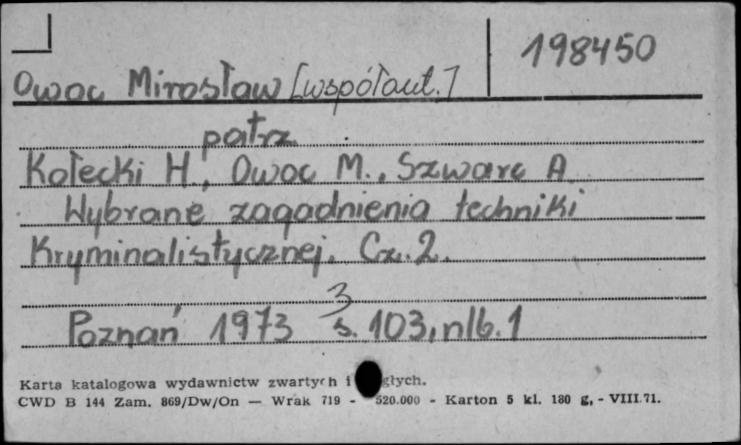 198450
Owoc Mirosław [współaut.]
patrz
Kołecki H., Owoc M., Szwarc A
Wybrane zagadnienia techniki
Kryminalistycznej. Cz. 2.
3
Poznań 1973 s. 103, nlb. 1
Karta katalogowa wydawnictw zwartych i głych.
CWD B 144 Zam. 869/Dw/On — Wrak 719 - 520.000 - Karton 5 kl. 180 g, - VIII.71.